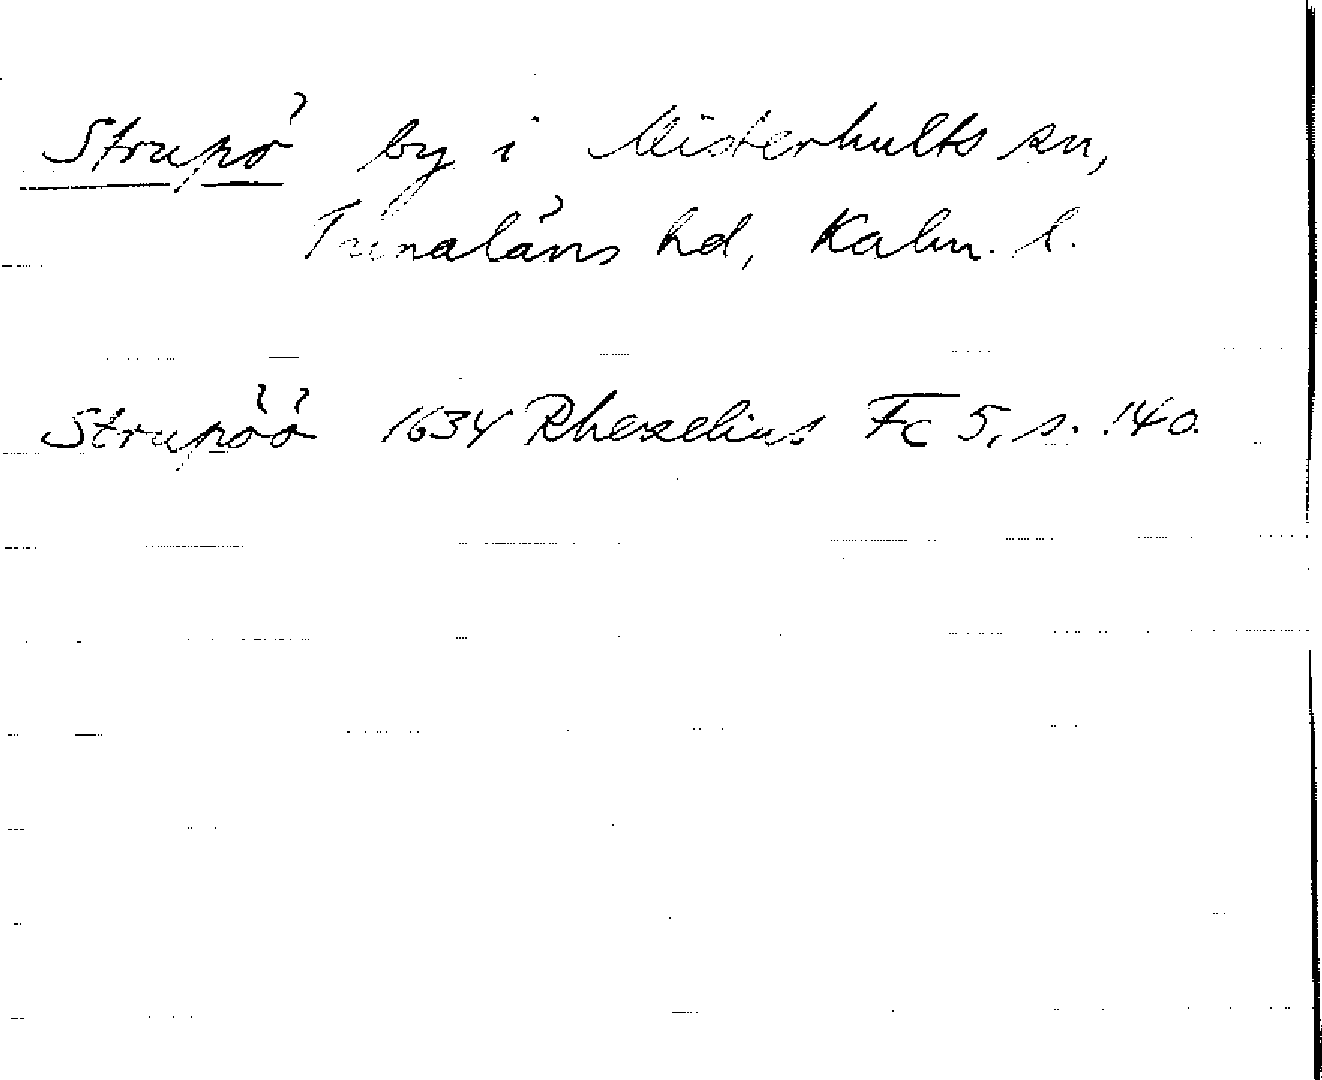 Strupö by i Misterhults sn,
Tunaläns hd, Kalm. l.
Strupöö 1634 Rhezelius Fc 5, s. 140.